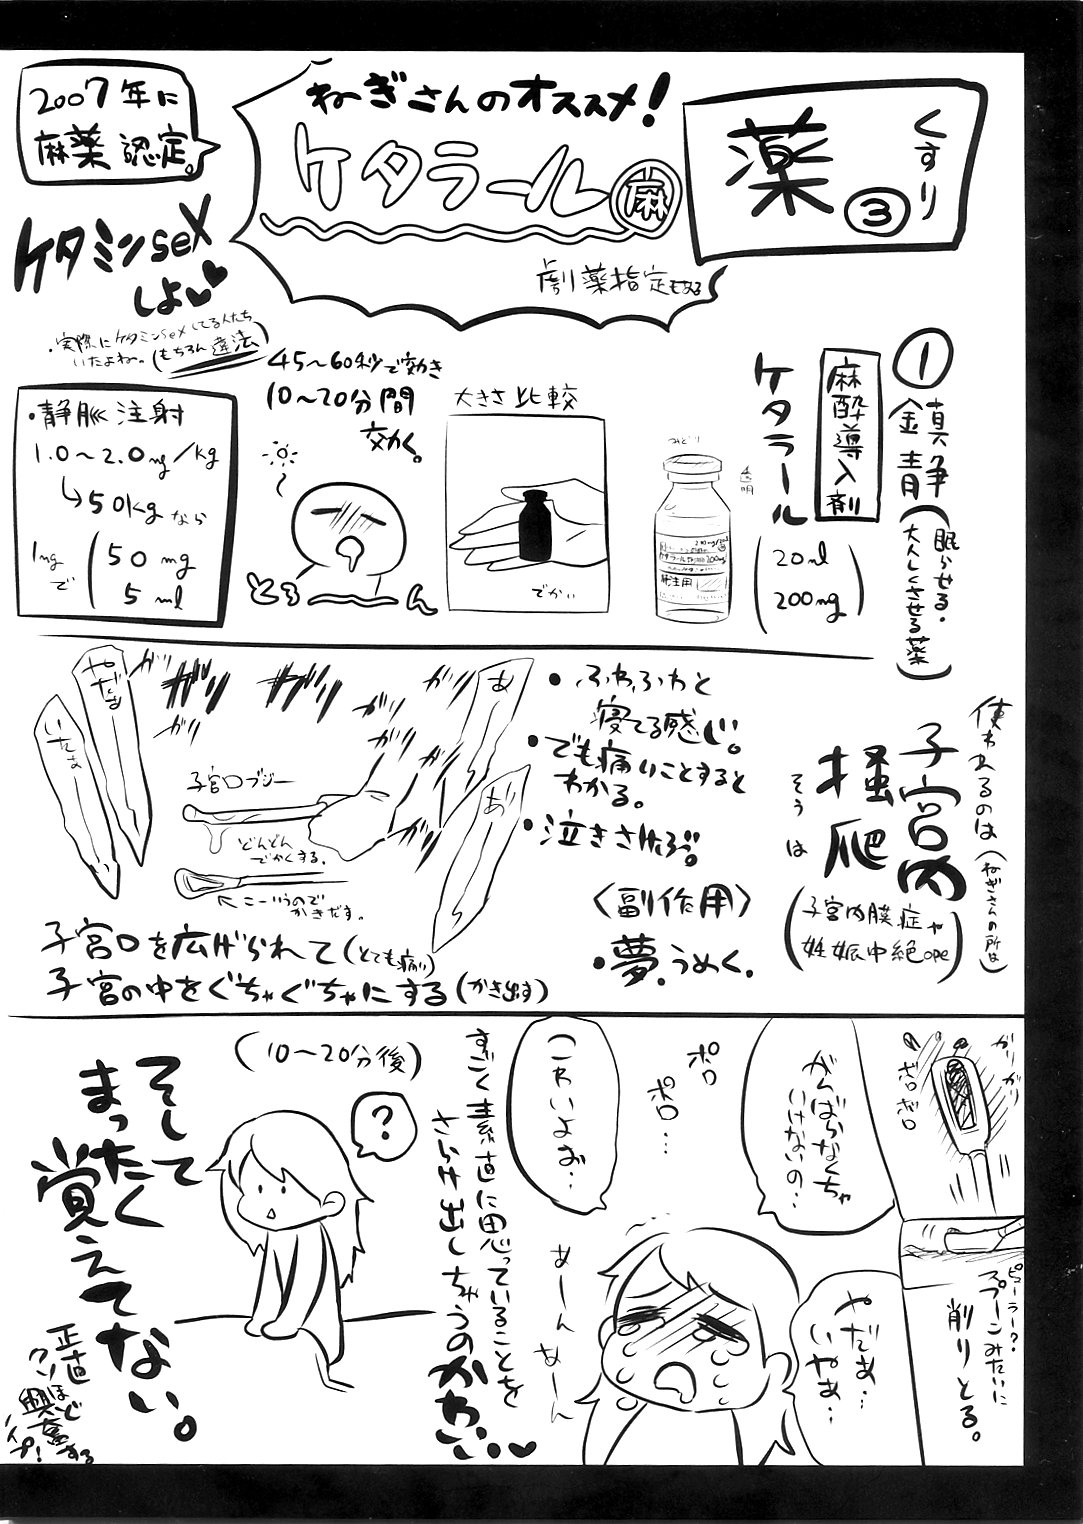 薬
くすり
③
ねぎさんのオススメ!
ケタラール
麻
劇薬指定もある
2007年に
麻薬認定。
ケタミンsex
しよ♥♥
・実際にケタミンsexしてる人たち
いたよね。(もちろん違法)
①
鎮静(眠らせる・
大人しくさせる薬)
麻酔導入剤
ケタラール
(20ml
200mg)
みどり
透明
200mg/20ml
筋注用
大きさ比較
でかい
45〜60秒で効き
10〜20分間
効く。
とろん
・静脈注射
1.0〜2.0mg/kg
↳50kgなら
1mgで(50mg
5ml
使われるのは(ねぎさんの所は)
子宮内
掻爬
そうは
(子宮内膜症や
妊娠中絶ope)
・ふわふわと
寝てる感じ。
・でも痛いことすると
わかる。
・泣きさけぶ。
〈副作用〉
・夢、うめく。
あ゛
あ゛
ガリ
ガリ
ガリ
ガリ
ガリ
ガリ
ガリ
やだぁ
いたぁ
子宮口ブジー
どんどん
でかくする。
こーいうので
かきだす。
子宮口を広げられて(とても痛い)
子宮の中をぐちゃぐちゃにする(かき出す)
ガリガリ
ボロボロ
ピューラー?
プーンみたいに
削りとる。
がんばらなくちゃ
いけないの…
やだぁ…
いやぁ…
ポロ
ポロ…
こわいよお…
あーん
あーん
すごく素直に思っていることを
さらけ出しちゃうのかわいい♥
(10〜20分後)
?
そして
まったく
覚えてない。
正直
クソほど
興奮する